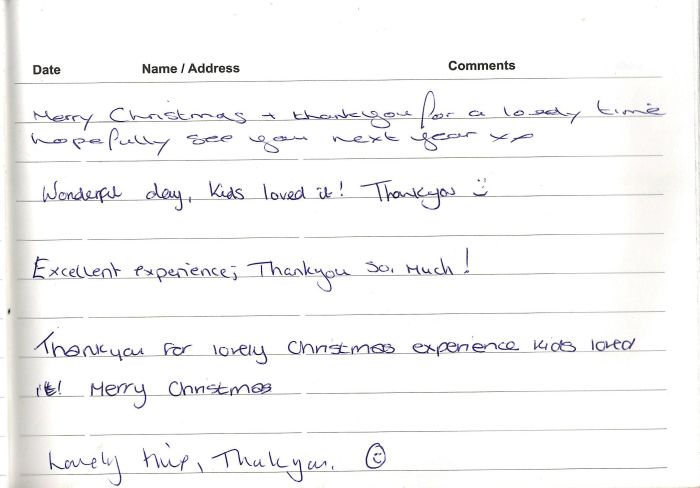 Date Name / Address Comments
Merry Christmas + thankyou for a lovely time
hopefully see you next year xx
Wonderful day, Kids loved it! Thankyou :)
Excellent experience; Thankyou so, much!
Thankyou for lovely Christmas experience kids loved
it! Merry Christmas
Lovely trip, Thankyou. ☺